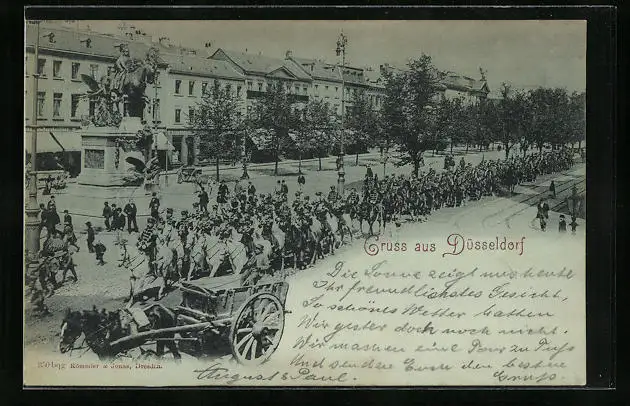 Gruss aus Düsseldorf
Die Sonne zeigt uns heute
Ihr freundlichstes Gesicht,
So schönes Wetter hatten
Wir gestern doch noch nicht.
Wir machen eine Tour zu Fuss
Und senden Euch den besten
Gruss.
Römmler & Jonas, Dresden.
August & Paul.